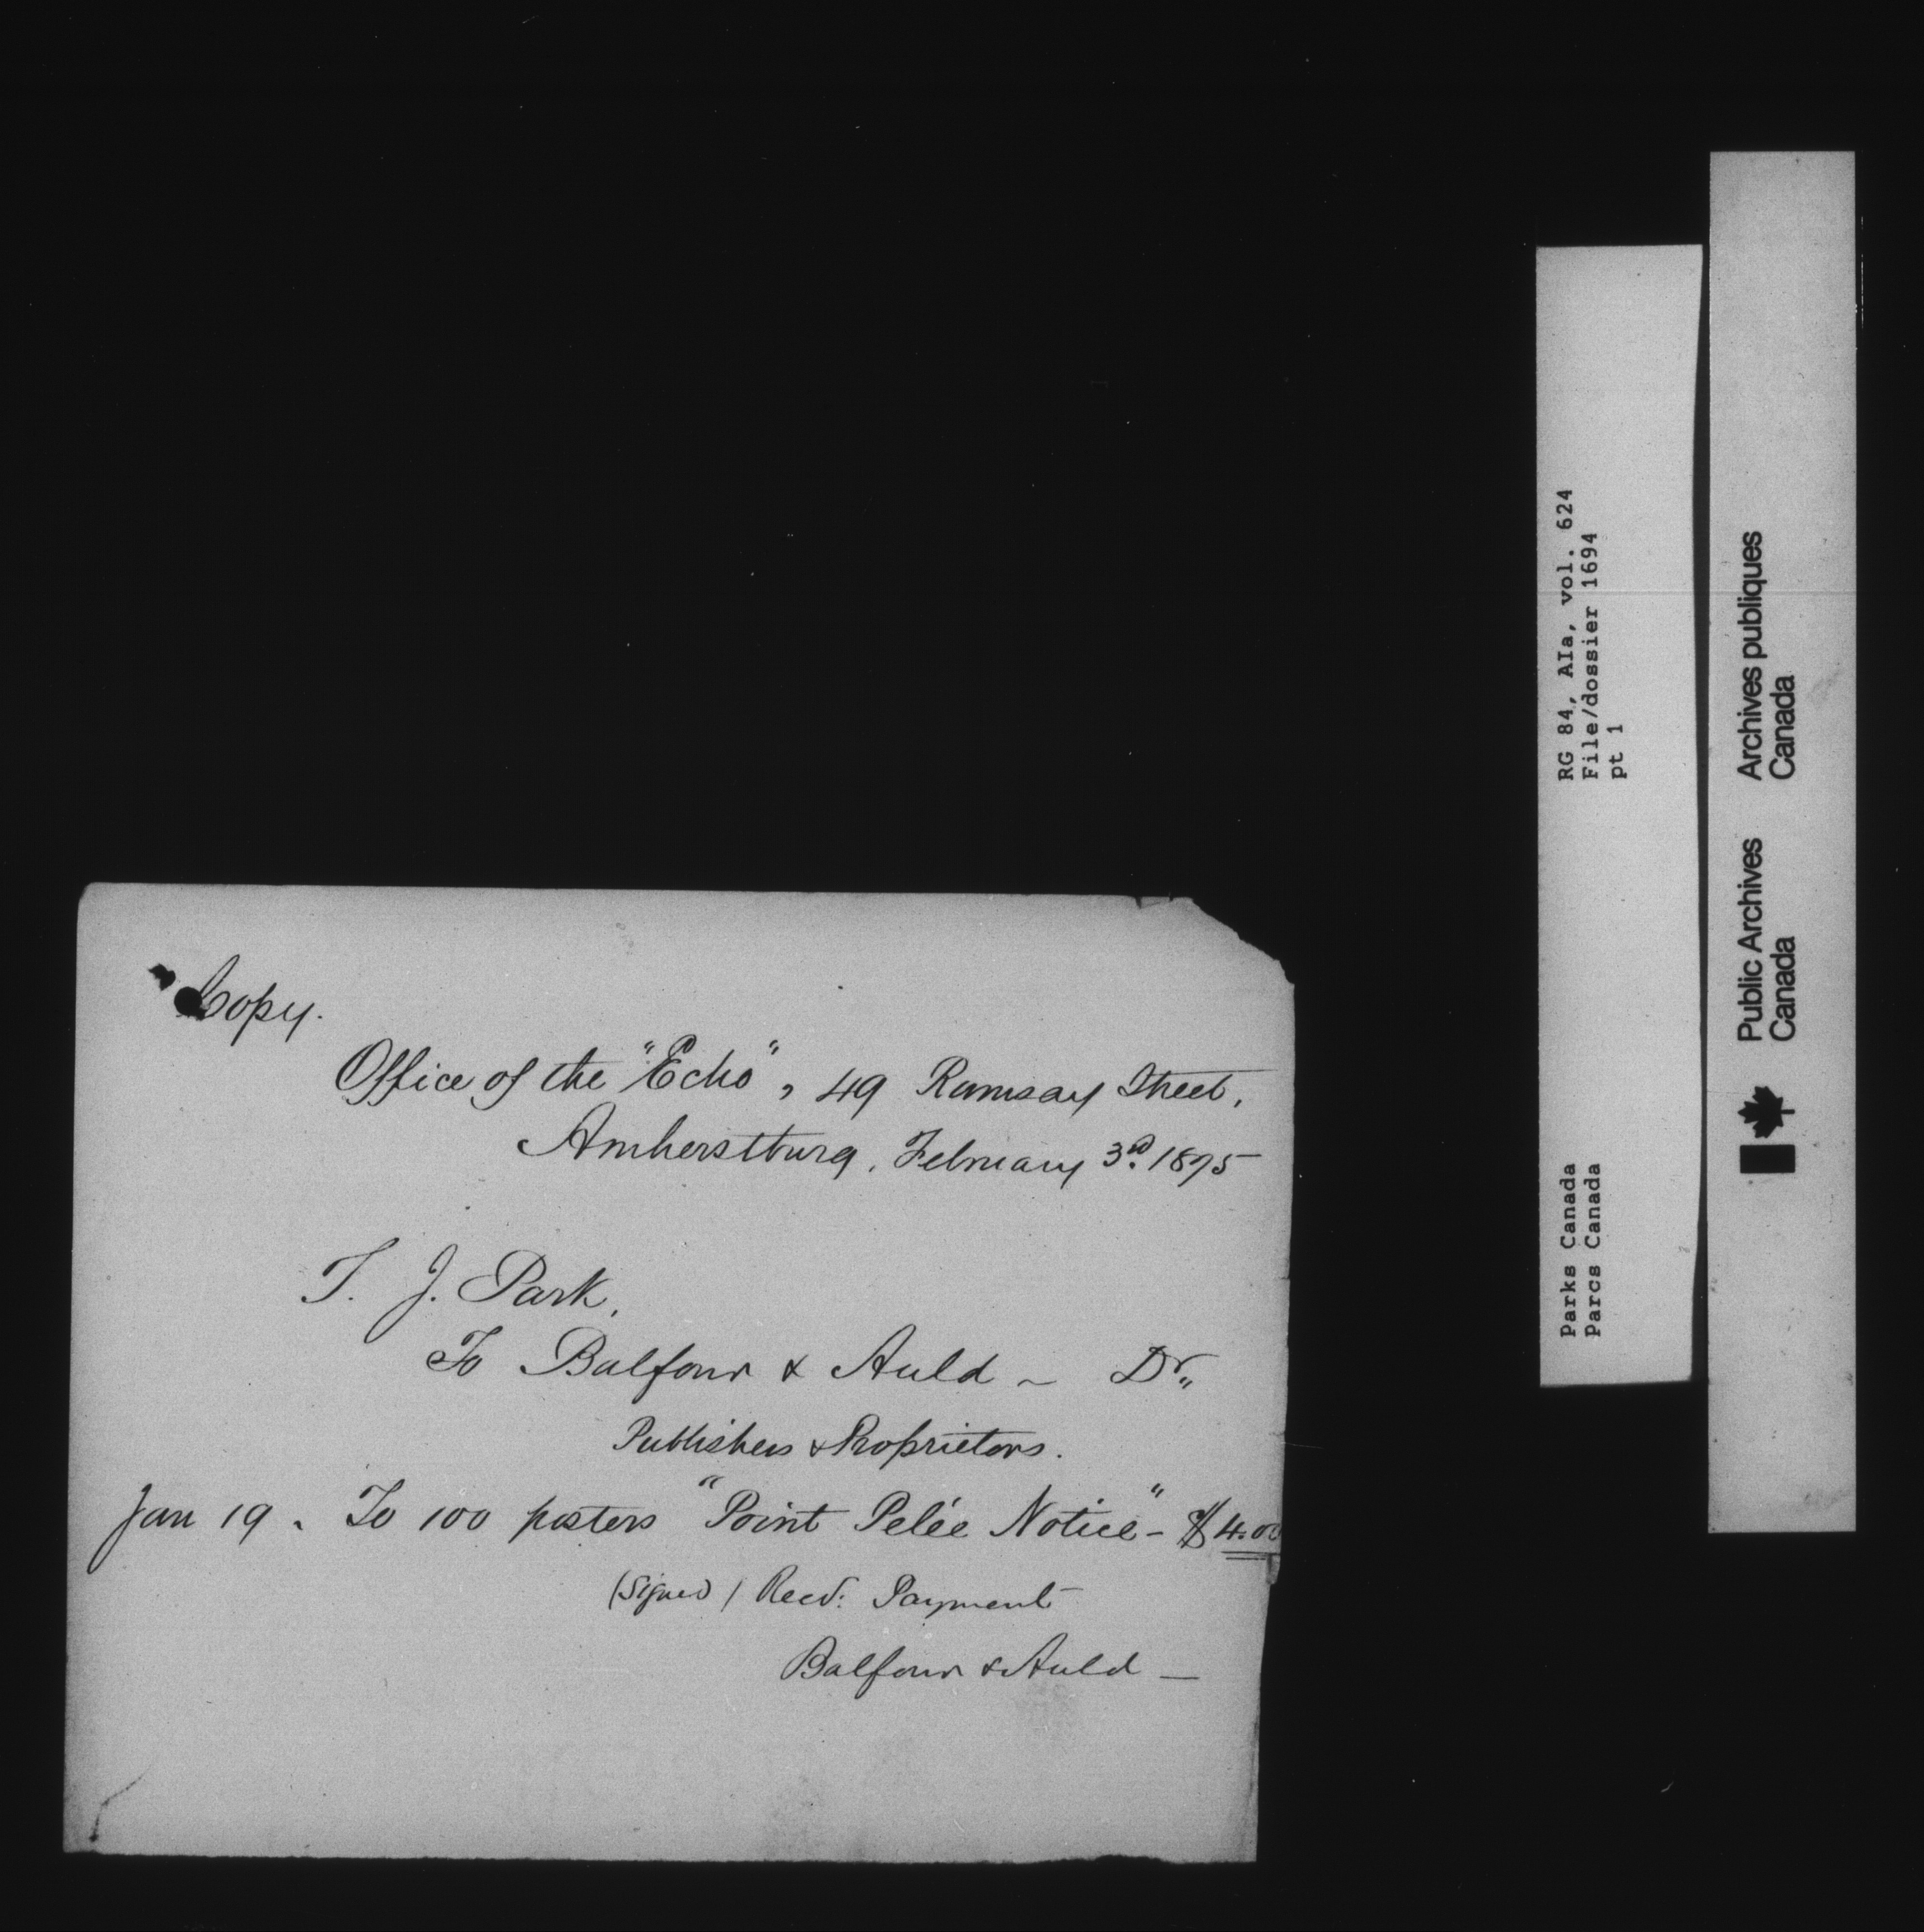 Copy.
Office of the "Echo", 49 Ramsay Street,
Amherstburg, February 3rd. 1875
T. J. Park,
To Balfour & Auld – Dr,,
Publishers & Proprietors.
Jan 19. To 100 posters "Point Pelée Notice" - $4.00
(Signed) Recd: Payment
Balfour & Auld —
RG 84, AIa, vol. 624
File/dossier 1694
pt 1
Parks Canada
Parcs Canada
Public Archives
Canada
Archives publiques
Canada